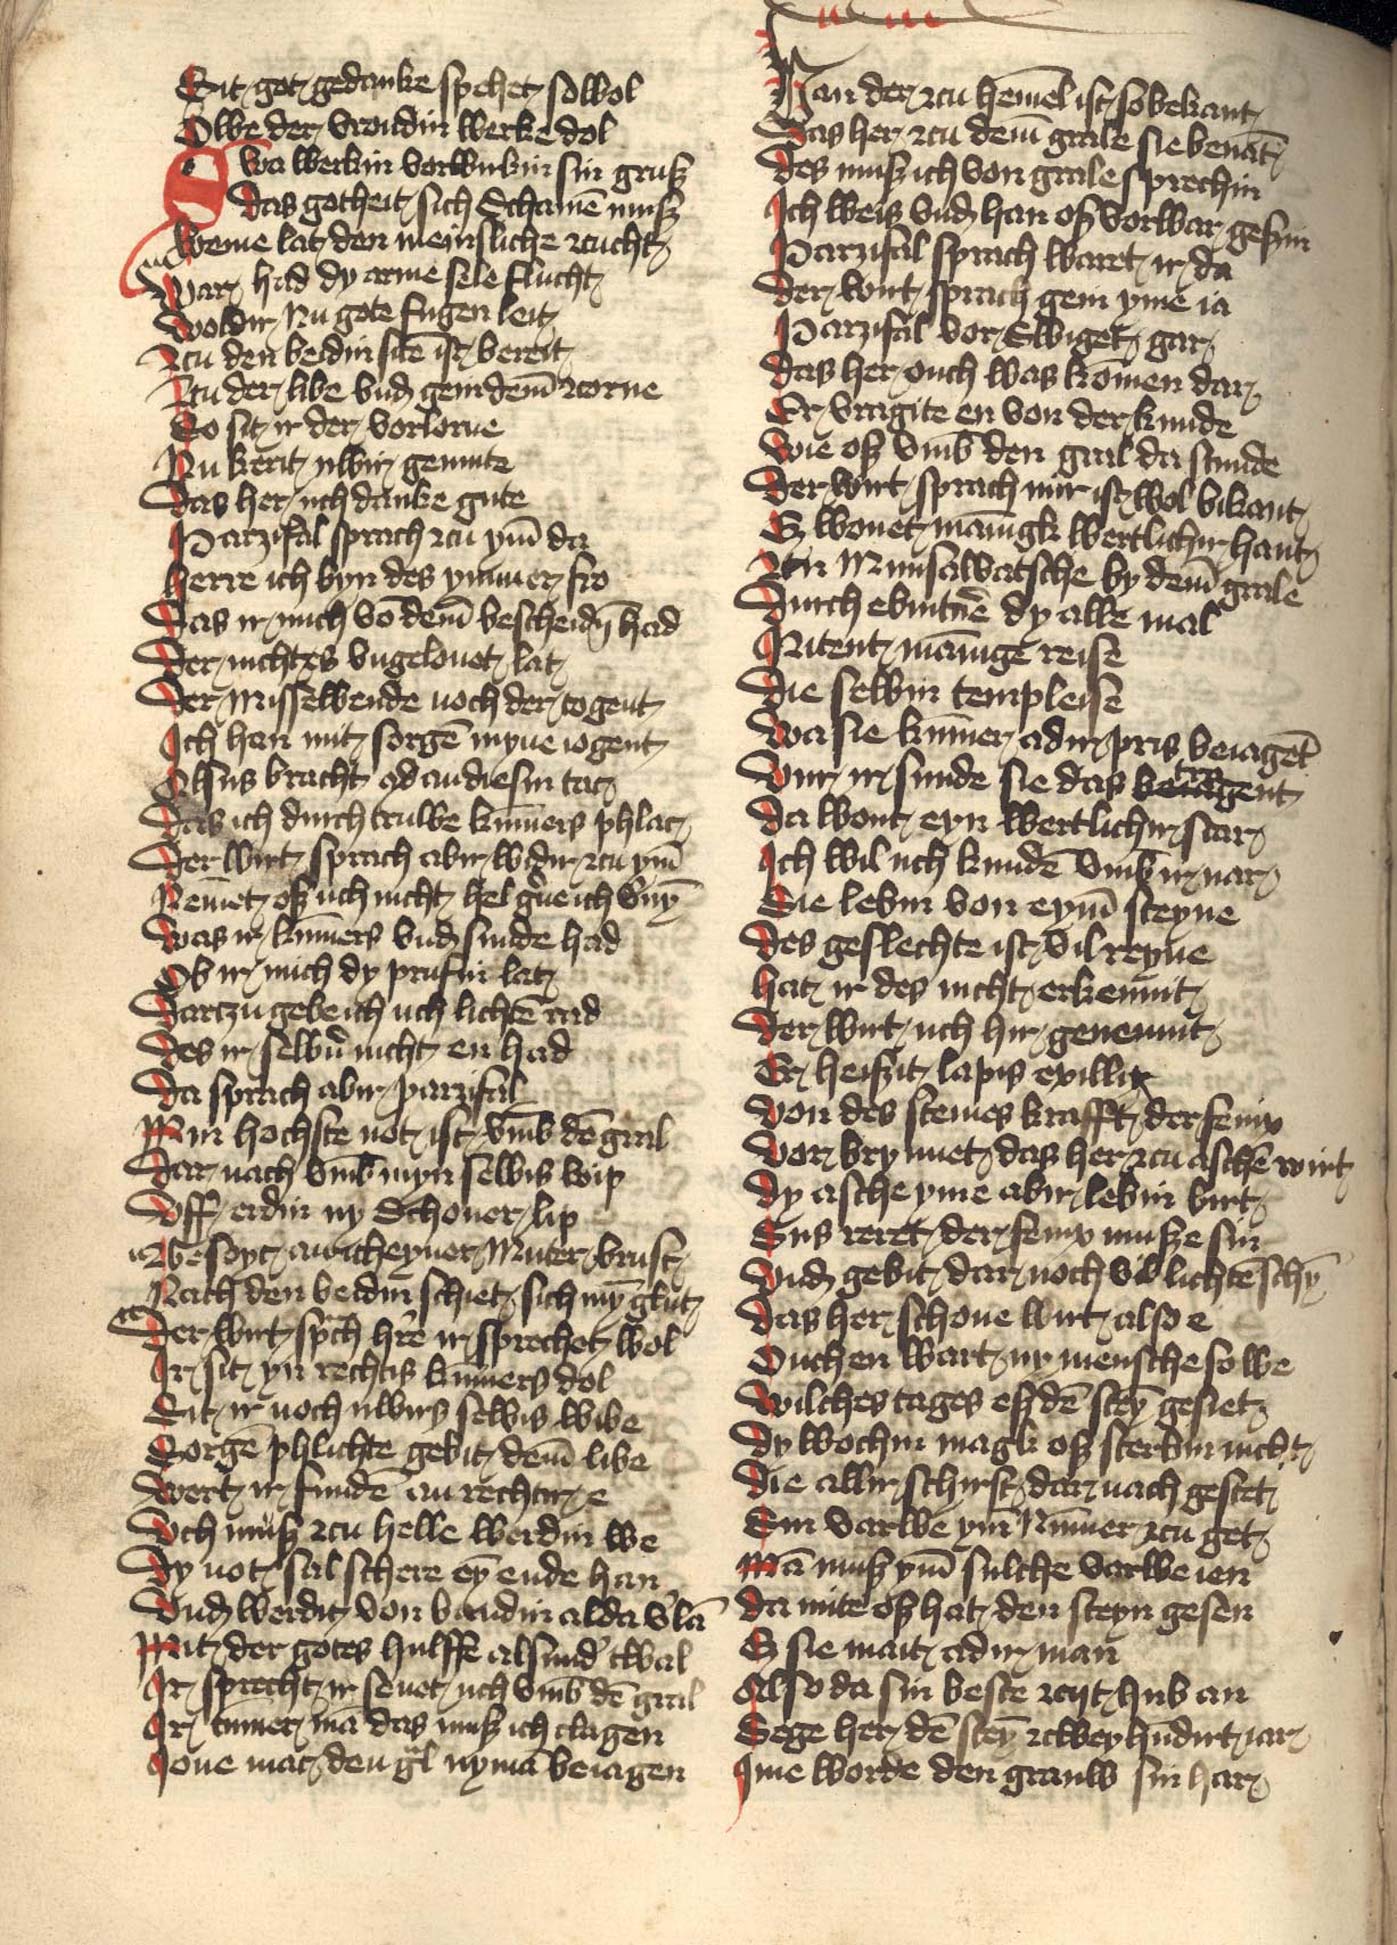 Sit got gedanke spehet so wol
Owe der broudin werke dol
Swa werkin vorwurkin sin grusz
das gotheit sich Schamē musz
weme lat den meinsliche zcucht
war had dy arme sele flucht
wold ir Nu gote fugen leit
Zcu den beidin sitē ist bereit
Zcu der libe vnd gein dem̄ zcorne
So sit ir der vorlorne
Nu kerit uwir gemute
das her uch danke gute
Parzifal sprach zcu ym̄ da
herre ich byn des ymmer fro
das ir mich vō dem̄ bescheidȳ had
der nichtes vngelonet lat
der Missewende noch der togent
Ich han mit sorgē myne iogent
Alsus bracht an diesin tac
das ich durch truwe kum̄ers phlac
der wirt sprach abir widir zcu ym̄
Nem̄et osz uch nicht hel
was ir kum̄ers vnd sunde had
Ob ir mich dy prufin lat
dartzu gebe ich uch lichte rad
des ir selbir nicht en had
da sprach abir parzifal
Min hochste not ist vmb dē gral
dar nach vmb myn selbis wip
Vff erdin ny Schoner lip
Gesoyc an keyner Muter brust
Nach den beidin schiet sich mȳ glust
der wirt sprach h're ir sprechet wol
Ir sit yn rechtis kum̄ers dol
Sit ir noch uwirs selbis wibe
Sorgē phlichte gebit dem̄ libe
wert ir fundē an rechtir e
Uch musz zcu helle werdin we
dy not sal schere eȳ ende han
vnd werdit von bandin alda v'lā
Mit der gotes hulffe alsund' twal
Ir sprecht ir senet uch vmb dē gral
Ir tum̄er mā das musz ich clagen
Jone mac den gral nymā beiagen
Wan der zcu hemel ist so bekant
das her zcu dem̄ grale sie benāt
des musz ich von grale sprechin
Ich weis vnd han osz vorwar gesein
Parzifal sprach waret ir da
der wirt sprach gein yme ia
Parzifal vor Swiget gar
das her ouch was komen dar
Er vragite en von der kunde
wie osz vmb den gral da stunde
der wirt sprach mir ist wol bikant
Ez wonet mānigk wertlichir hant
Zcu Munsalvatsche by dem̄ grale
durch ebintuē dy alle mal
Ritent mānige reise
die selbin templeise
wa sie kum̄er adir pris beiagēt
vur ir sunde sie das betragent
da wont eyn wertlichir scar
Ich wil uch kundē vmb ir nar
Sie lebin von eym̄ steyne
des geslechte ist vil reyne
hat ir des nicht erkennit
der wirt uch hir genennit
Er heiszit lapis exillix
von des steines krafft der fenix
vor brynnet das her zcu aschē wirt
dy asche yme abir lebin birt
Sus reret der fenix musze sin
vnd gebit dar noch vil lichtē schȳ
das her schone wirt also e
Ouch en wart ny mensche so we
wilches tages esz dē steȳ gesiet
dy wochin magk osz sterbin nicht
die allir schirst dar nach gestet
Sin varwe ym̄ Num̄er zcu get
Mā musz ym̄ sulche varwe ien
da mite osz hat den steyn gesen
Ez sie mait adir man
Also da sin beste zcijt hub an
Sege her dē steȳ zcwey hudirt iar
Ime worde den grauw sin har